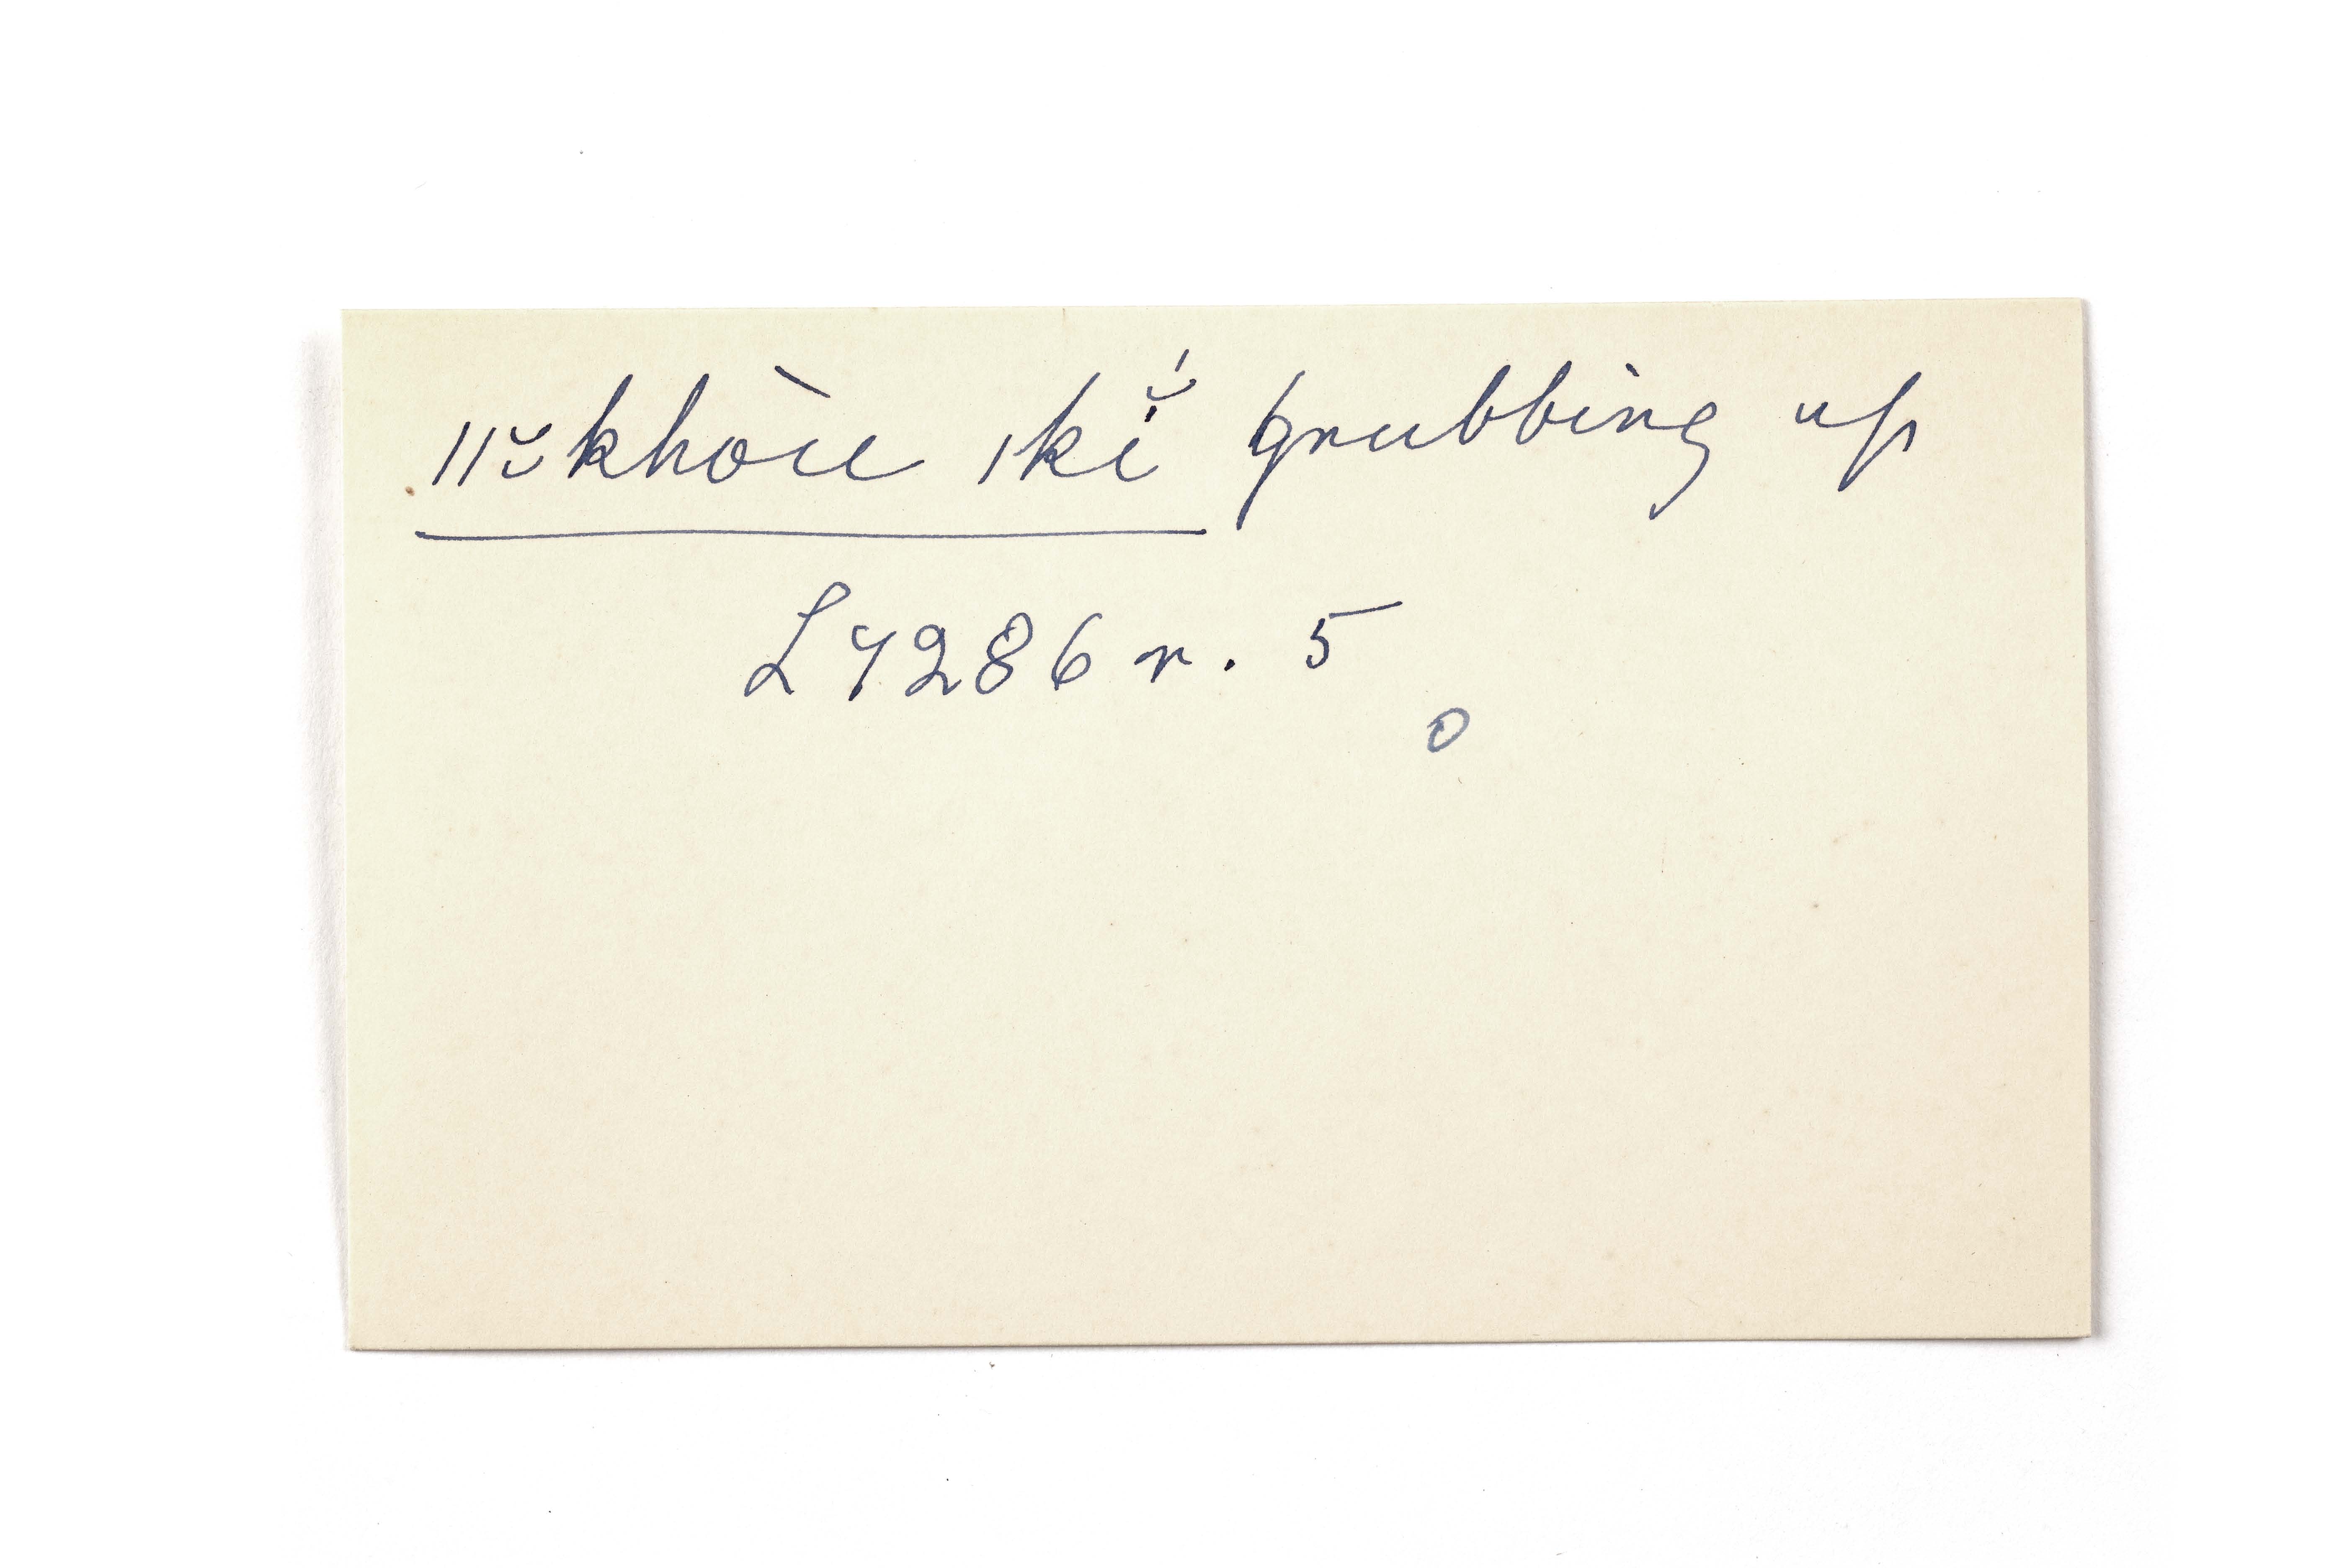 ǁ̆khòu ǀkĭ́ grubbing up
L 7286 r. 5
o